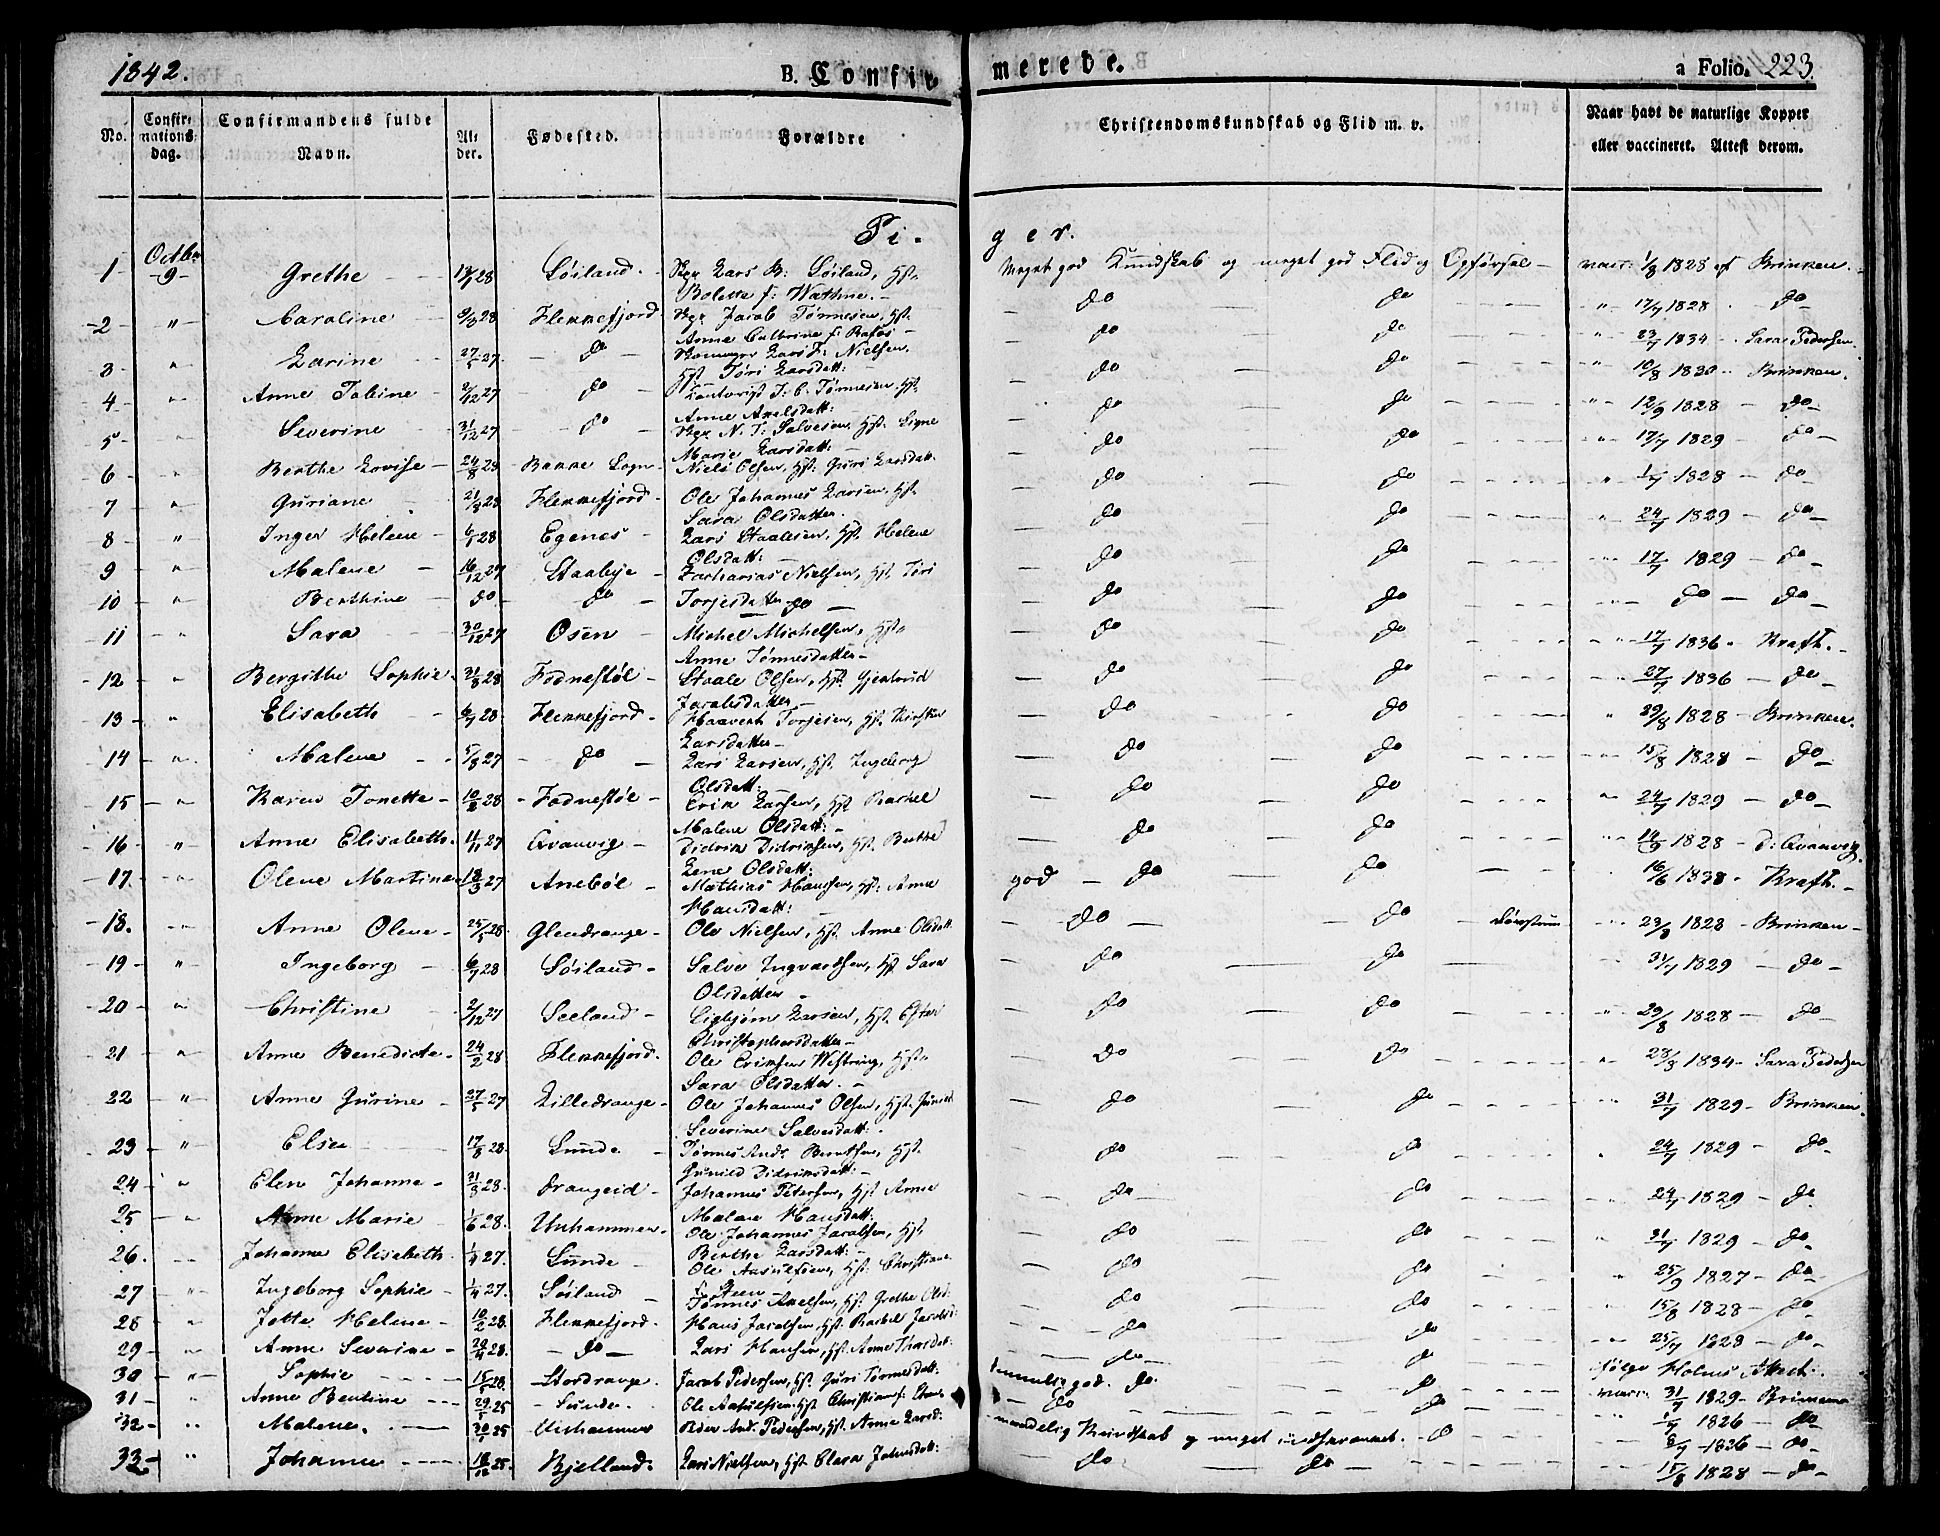 1842.
B. Confir
merede.
a Folio. 223.
No.
Confir-
mations-
dag.
Confirmandens fulde
Navn.
Al-
der.
Fødested.
Forældre
Christendomskundskab og Flid m. v.
Naar havt de naturlige Kopper
eller vaccineret. Attest derom.
Pi-
ger.
1 Octbr 9 Grethe 28 Søiland Lars B: Søiland, Hst. Bolette f: Wathne. Meget god Kundskab og meget god Flid og Opførsel vacc: 1828 af Brinken.
2 " Caroline 28 Flekkefjord Jacob Tønnesen, Hst. Anne Cathrine f: do do " 17/7 1828 do
3 " Larine 27/5 27 do Lars F: Nielsen, Hst. Tøri Larsdatt: do do " 1834 Sara Pedersen.
4 " Anne Tobine 2/12 27 do J: C. Tønnesen, Hst. Anne Axelsdatt: do do " 10/8 1830 Brinken.
5 " Severine 31/12 27 do N. T: Salvesen, Hst. Signe Marie Larsdatt: do do " 12/9 1828 do
6 " Berthe Lovise 24/8 28 Bakke Sogn Niels Olsen, Hst: Guri Larsdatt. do do " 17/7 1829 do
7 " Guriane 28 Flekkefjord Ole Johannes Larsen, Hst. Sara Olsdatter. do do " 1828 do
8 " Inger Helene 28 Egenes Lars Staalesen, Hst. Helene Olsdatt: do do " 24/7 1829 do
9 " Malene 16/12 27 Zacharias Nielsen, Hst. Tøri Torjesdatter do do " 17/7 1829 do
10 " Berthine do do do do do " do do
11 " Sara 30/12 27 Osen Michel Michelsen, Hst. Anne Tønnesdatter do do " 17/7 1836 Kraft.
12 " Bergithe Sophie 28 Fodnestøl Staale Olsen, Hst. Gjertrud Jacobsdatter do do 27/7 1836 do
13 " Elisabeth 28 Flekkefjord Torjesen, Hst. Kirsten Larsdatter do do " 29/8 1828 Brinken.
14 " Malene 27 do Lars Larsen, Hst. Ingeborg Olsdatt: do do " 15/8 1828 do
15 " Karen Tonette 28 Fodnestøl Erik Larsen, Hst. Rachel Malene Olsdatt: do do " 24/7 1829 do
16 " Anne Elisabeth 11/11 27 Qvanvig Didrik Didriksen, Hst. Berthe Lene Olsdatt: do do " 14/9 1828 D: Qvanvig.
17 " Olene Martine 27 Anebøl Mathias Hansen, Hst: Anne Hansdatt: god do do 16/6 1838 Kraft.
18. " Anne Olene 25/5 28 Glendrange Ole Nielsen, Hst. Anne Olsdatt. do do " 1828 Brinken
19 " Ingeborg 28 Søiland Salve Ingvaldsen, Hst. Sara Olsdatter do do 31/7 1829 do
20 " Christine 2/12 27 Seeland Sigbjørn Larsen, Hst. Ester Christophersdatter do do " 29/8 1828 do
21 " Anne Benedicte 24/2 28 Flekkefjord. Ole Eriksen Westring, Hst. Sara Olsdatter. do do " 1834 Sara Pedersen
22 " Anne Gurine 27/5 27 Lilledrange Ole Johannes Olsen, Hst. Severine Salvesdatt: do do 31/7 1829 Brinken
23 " Elsee 28 Lunde Tønnes And: Berntsen, Hst. Gunild Didriksdatt: do do " 24/7 1829 do
24 " Elen Johanne 28 Drangeid Johannes Petersen, Hst. Anne Malene Hansdatt: do do 24/7 1829 do
25 " Anne Marie 28. Unhammer. Ole Johannes Jacobsen, Hst. Berthe Larsdatt: do do 31/7 1829 do
26. " Johanne Elisabeth 27. Lunde Ole Aasulfsen, Hst: Christiane f: Steen do do " 25/9 1827 do
27 " Ingeborg Sophie 1/4 27. Søiland Tønnes Axelsen, Hst. Grethe Olsd: do do 15/8 1828 do
28 " Jette Helene 10/2 28. Flekkefjord. Hans Jacobsen, Hst. Rachel Jacobsd: do do " 1828 do
29 " Anne Severine 28. do Lars Hansen, Hst. Anne do do ifølge Holms Attest:
30 " Sophie 28. Stordrange. Jacob Pedersen, Hst. Guri Tønnesdatt: temmelig god. do do vacc: 31/7 1829 Brinken
31 " Anne Bentine 25 Lunde Ole Aasulfsen, Hst. Christiane f: Steen do do " 1826 do
32 " Malene. 25 Unhammer Peder And: Pedersen, Hst. Anne Larsd: maadelig Kundskab og meget indskrænket. do 1826 do
33 " Johanne 25. Bjelland. Lars Nielsen, Hst. Clara Johnsdatt: do do 15/8 1828 do